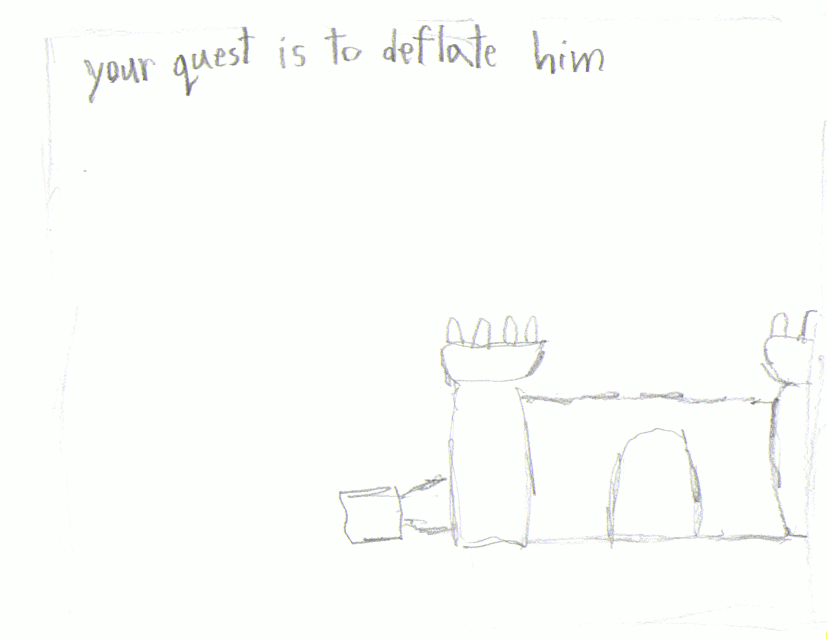 your quest is to deflate him